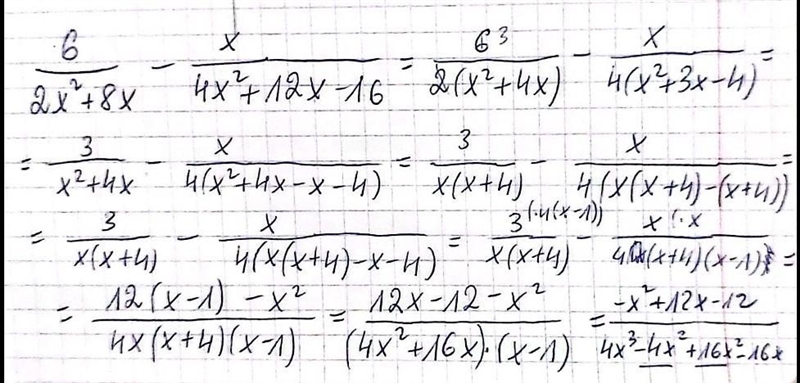 6/(2x²+8x) − x/(4x²+12x−16) = 6³/(2(x²+4x)) − x/(4(x²+3x−4)) =
= 3/(x²+4x) − x/(4(x²+4x−x−4)) = 3/(x(x+4)) − x/(4(x(x+4)−(x+4))) =
= 3/(x(x+4)) − x/(4(x(x+4)−x−4)) = 3(·4(x−1))/(x(x+4)) − x(·x/(4(x+4)(x−1)) =
= (12(x−1) −x²)/(4x(x+4)(x−1)) = (12x−12−x²)/((4x²+16x)·(x−1)) = (−x²+12x−12)/(4x³−4x²+16x²−16x)